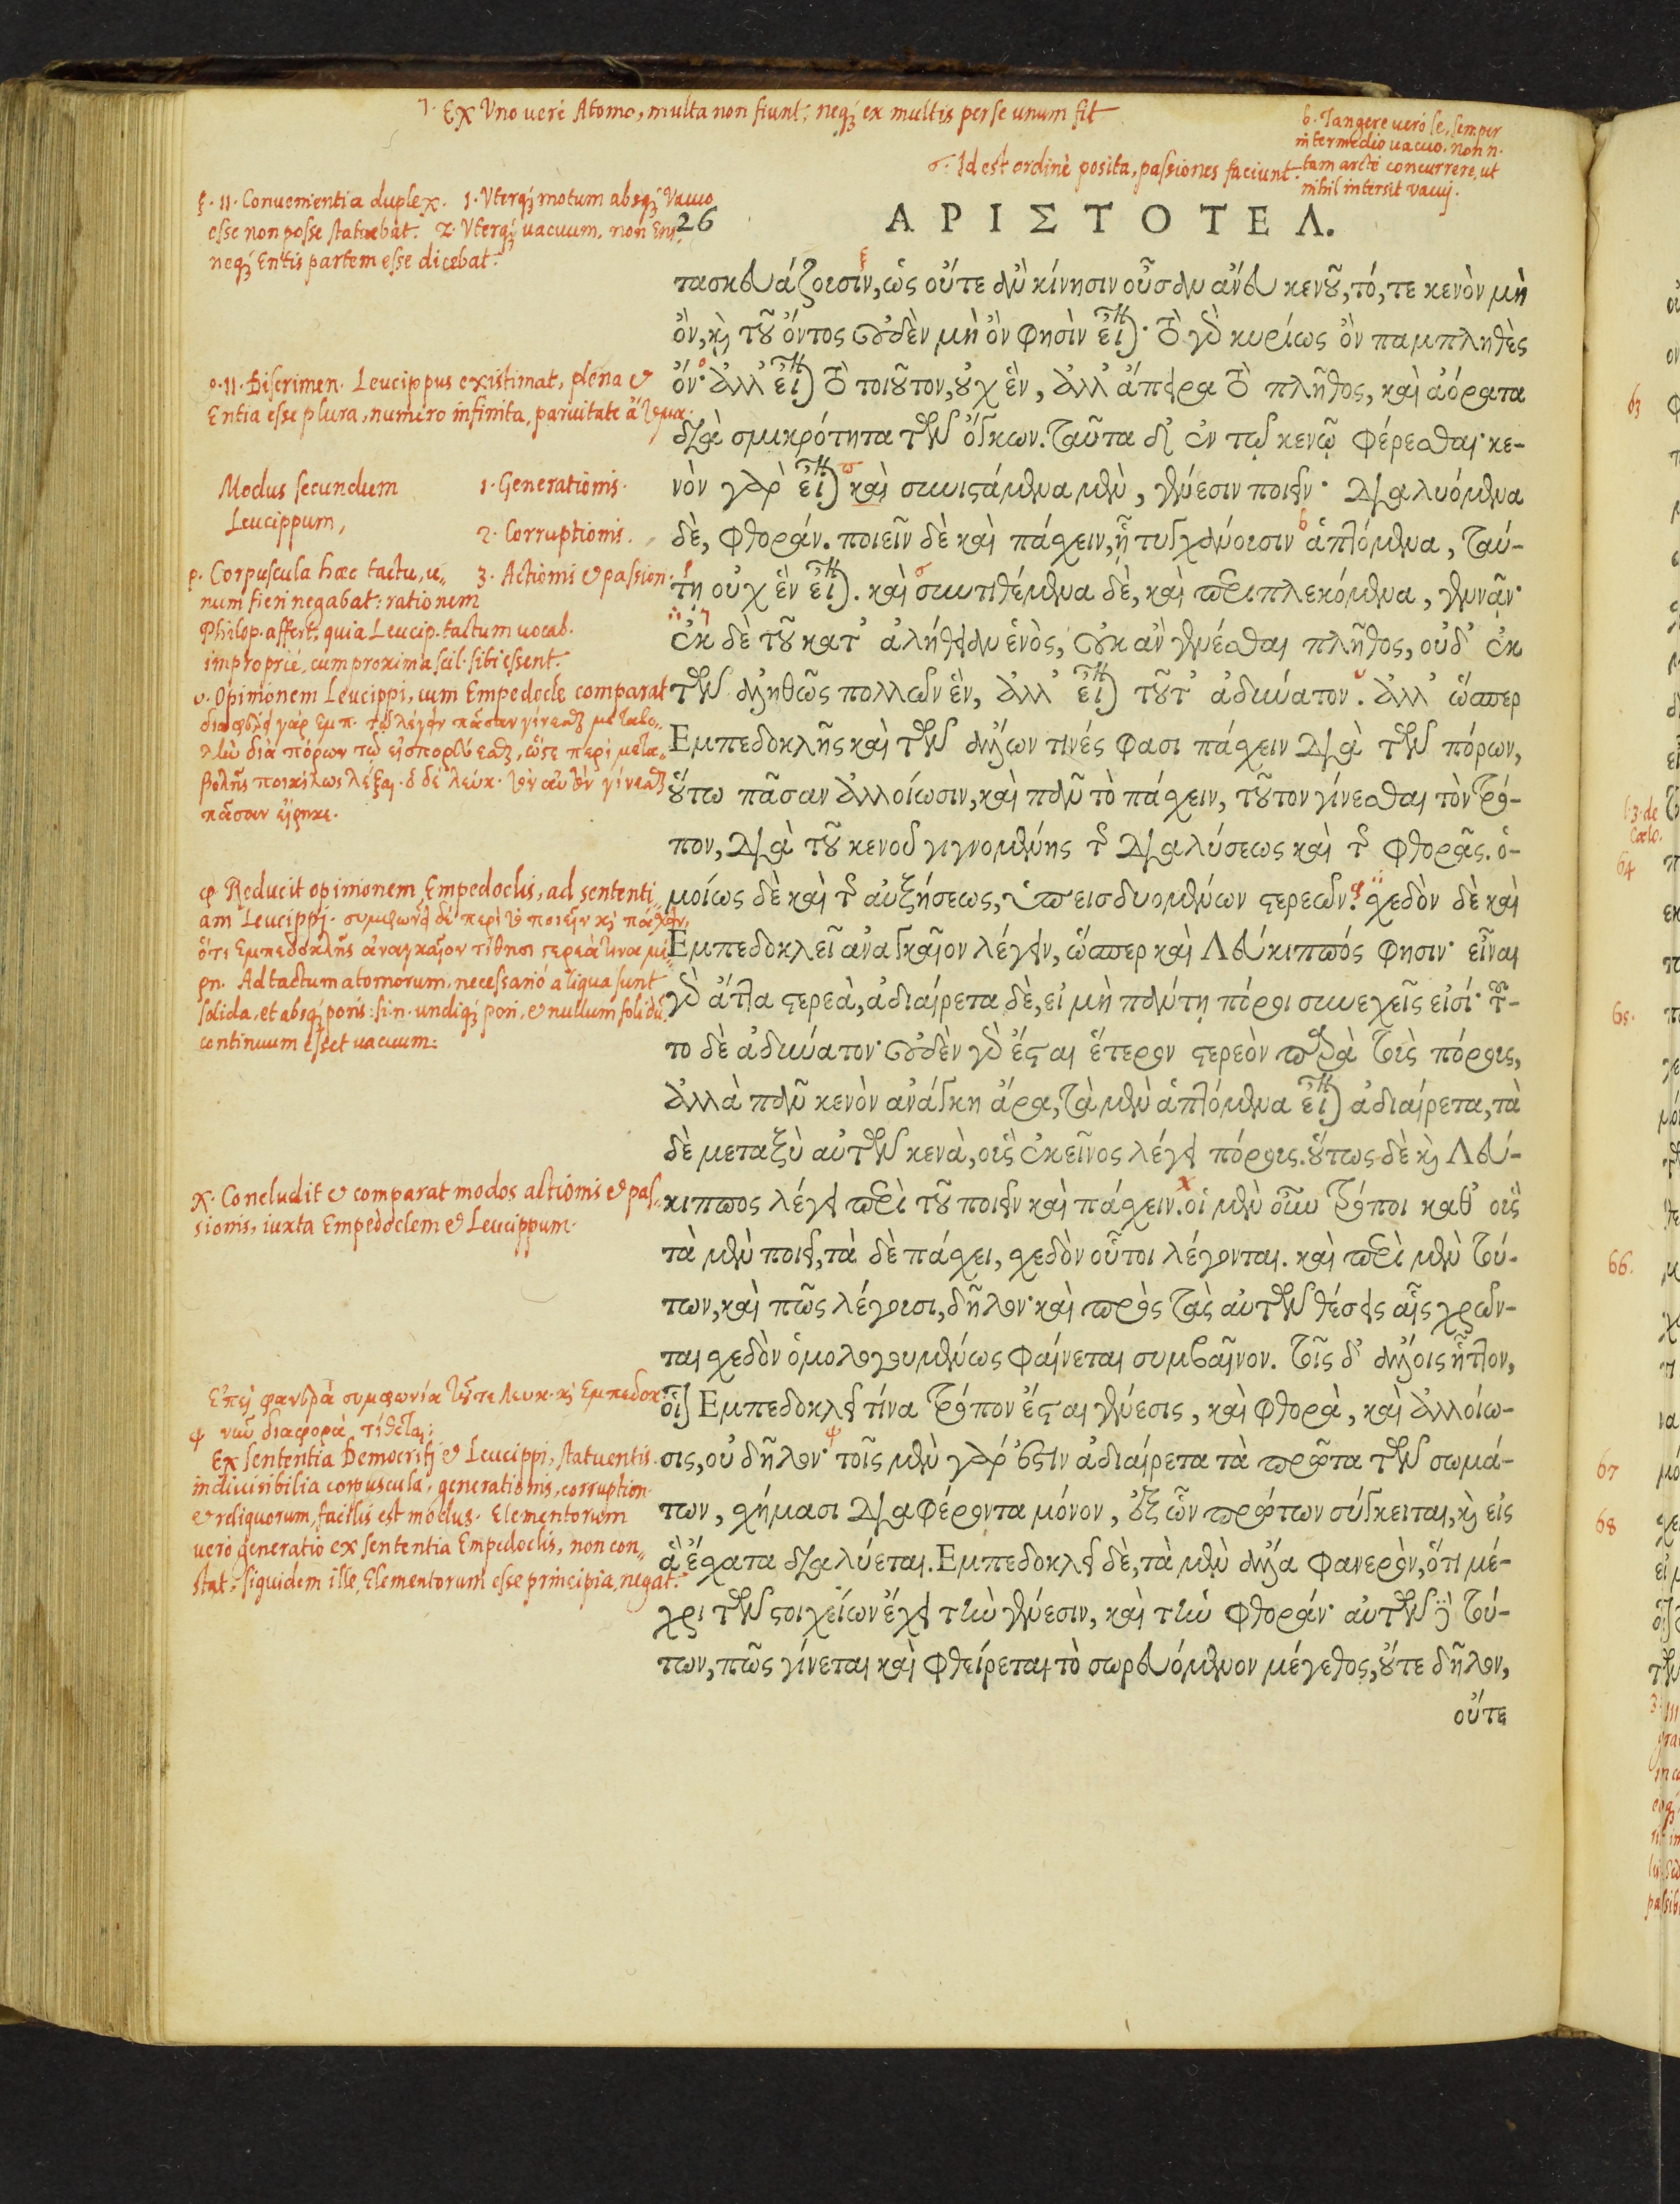 τ. Ex Uno uere Atomo, multa non fiunt: neq; ex multis per se unum fit.
b. Tangere uero se, semper
intermedio uacuo. non n.
tam arcte concurrere, ut
nihil intersit vacuj.
σ. Id est ordine posita, passiones faciunt.
ξ. 11. Conuenientia duplex. 1. Vterq; motum absq; Vacuo
esse non posse statuebat. 2. Vterq; uacuum, non Ens,
neq; Entis partem esse dicebat.
26
ΑΡΙΣΤΟΤΕΛ.
τασκευάζουσιν, ὡς οὔτε ἂν κίνησιν οὖσαν ἄνευ κενοῦ, τό, τε κενὸν μὴ
ὄν, καὶ τοῦ ὄντος οὐδὲν μὴ ὄν φησὶν εἶ). τὸ γὸ κυρίως ὂν παμπληθὲς
ὄν· ἀλλ' εἶ) τὸ τοιοῦτον, οὐχ ἓν, ἀλλ' ἄπειρα τὸ πλῆθος, καὶ ἀόρατα
διὰ σμικρότητα τῶν ὄγκων. ταῦτα δ' ἐν τῷ κενῷ φέρεσθαι· κε-
νὸν γὰρ εἶ) καὶ συνιστάμενα μὲν, γένεσιν ποιεῖν· διαλυόμενα
δὲ, φθοράν. ποιεῖν δὲ καὶ πάσχειν, ᾗ τυγχάνουσιν ἁπτόμενα, ταύ-
τῃ οὐχ ἓν εἶ). καὶ συντιθέμενα δὲ, καὶ περιπλεκόμενα, γεννᾶν·
ἐκ δὲ τοῦ κατ' ἀλήθειαν ἑνὸς, οὐκ ἂν γενέσθαι πλῆθος, οὐδ' ἐκ
τῶν ἀληθῶς πολλῶν ἓν, ἀλλ' εἶ) τοῦτ' ἀδύνατον. ἀλλ' ὥσπερ
Εμπεδοκλῆς καὶ τῶν ἄλλων τινές φασι πάσχειν διὰ τῶν πόρων,
οὕτω πᾶσαν ἀλλοίωσιν, καὶ πᾶν τὸ πάσχειν, τοῦτον γίνεσθαι τὸν τρό-
πον, διὰ τοῦ κενοῦ γιγνομένης τῆς διαλύσεως καὶ τῆς φθορᾶς. ὁ-
μοίως δὲ καὶ τῆς αὐξήσεως, ὑπεισδυομένων στερεῶν. σχεδὸν δὲ καὶ
Εμπεδοκλεῖ ἀναγκαῖον λέγειν, ὥσπερ καὶ Λεύκιππός φησιν· εἶναι
γὸ ἄττα στερεὰ, ἀδιαίρετα δὲ, εἰ μὴ πάντῃ πόροι συνεχεῖς εἰσί· τοῦ-
το δὲ ἀδύνατον· οὐδὲν γὸ ἔσται ἕτερον στερεὸν παρὰ τοὺς πόρους,
ἀλλὰ πᾶν κενὸν ἀνάγκη ἄρα, τὰ μὲν ἁπτόμενα εἶ) ἀδιαίρετα, τὰ
δὲ μεταξὺ αὐτῶν κενὰ, οὓς ἐκεῖνος λέγει πόρους. οὕτως δὲ καὶ Λεύ-
κιππος λέγει περὶ τοῦ ποιεῖν καὶ πάσχειν. οἱ μὲν οὖν τρόποι καθ' οὓς
τὰ μὲν ποιεῖ, τὰ δὲ πάσχει, σχεδὸν οὗτοι λέγονται. καὶ περὶ μὲν τού-
των, καὶ πῶς λέγουσι, δῆλον· καὶ πρὸς τὰς αὐτῶν θέσεις αἷς χρῶν-
ται σχεδὸν ὁμολογουμένως φαίνεται συμβαῖνον. τοῖς δ' ἄλλοις ἧττον,
οἷον Εμπεδοκλεῖ τίνα τρόπον ἔσται γένεσις, καὶ φθορὰ, καὶ ἀλλοίω-
σις, οὐ δῆλον· τοῖς μὲν γάρ ἐστιν ἀδιαίρετα τὰ πρῶτα τῶν σωμά-
των, σχήμασι διαφέροντα μόνον, ἐξ ὧν πρώτων σύγκειται, καὶ εἰς
ἃ ἔσχατα διαλύεται. Εμπεδοκλεῖ δὲ, τὰ μὲν ἄλλα φανερὸν, ὅτι μέ-
χρι τῶν στοιχείων ἔχει τὴν γένεσιν, καὶ τὴν φθοράν· αὐτῶν δὲ τού-
των, πῶς γίνεται καὶ φθείρεται τὸ σωρευόμενον μέγεθος, οὔτε δῆλον,
οὔτε
ο. 11. Discrimen. Leucippus existimat, plena et
Entia esse plura, numero infinita, paruitate ἄτομα.
Modus secundum
Leucippum,
1. Generationis.
2. Corruptionis.
3. Actionis et passion.
ρ. Corpuscula haec tactu, u-
num fieri negabat: rationem
Philop. affert, quia Leucip. tactum uocab.
improprie, cum proxima scil. sibi essent.
υ. Opinionem Leucippi, cum Empedocle comparat
πᾶσαν εἴρηκε.
φ. Reducit opinionem Empedoclis, ad sententi
am Leucippj. συμφωνεῖ δὲ περὶ τοῦ ποιεῖν καὶ πάσχειν,
ὅτι Εμπεδοκλῆς ἀναγκαῖον τίθησι στερεά τινα μέ-
ρη. Ad tactum atomorum, necessario aliqua sunt
solida, et absq; poris: si n. undiq; pori, et nullum solidū,
continuum esset uacuum.
χ. Concludit et comparat modos actionis et pas-
sionis, iuxta Empedoclem et Leucippum.
Επεὶ φανερὰ συμφωνία τοῦ τε Λευκ. καὶ Εμπεδοκ.
ψ νῦν διαφορὰ τίθεται:
Ex sententia Democriti et Leucippi, statuentis
indiuisibilia corpuscula, generationis, corruption.
et reliquorum, facilis est modus. Elementorum
uero generatio ex sententia Empedoclis, non con-
stat, siquidem ille, Elementorum esse principia, negat.
63
l. 3. de
Cœlo.
64
65.
66.
67
68